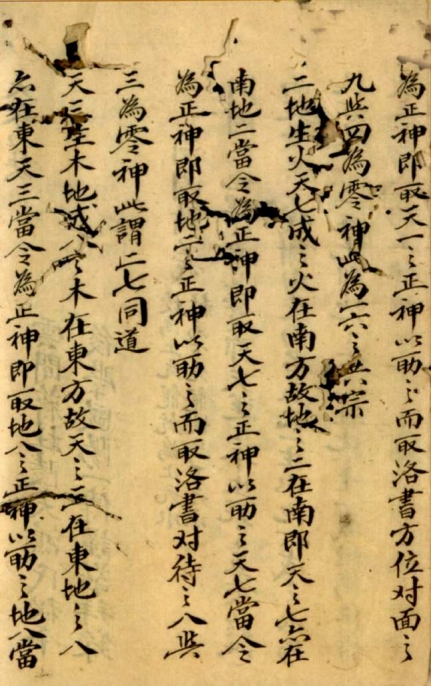 為正神即取天一之正神以助之而取洛書方位对面之
九與四為零神此為一六之共宗
二地生火天七成之火在南方故地之二在南即天之七亦在
南地二當令為正神即取天七之正神以助之天七當令
為正神即取地二之正神以助之而取洛書对待之八與
三為零神此謂二七同道
天三生木地成八之木在東方故天之三在東地之八
亦在東天三當令為正神即取地八之正神以助之地八當